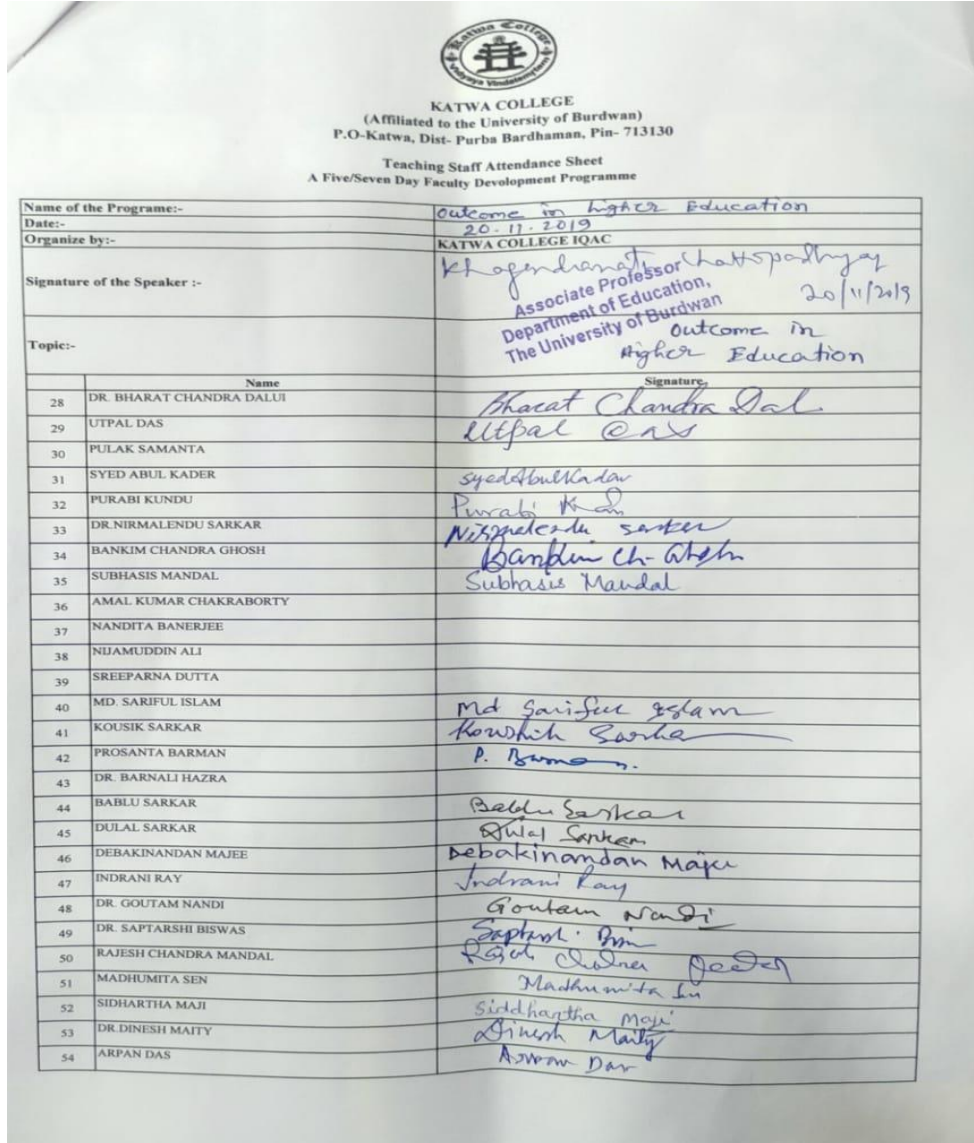 Katwa College
Vidyaya Vindatemrtam
KATWA COLLEGE
(Affiliated to the University of Burdwan)
P.O-Katwa, Dist- Purba Bardhaman, Pin- 713130
Teaching Staff Attendance Sheet
A Five/Seven Day Faculty Devolopment Programme
Name of the Programe:- Outcome in higher Education
Date:- 20.11.2019
Organize by:- KATWA COLLEGE IQAC
Signature of the Speaker :- Khagendranath Chattopadhyay
Associate Professor
Department of Education,
The University of Burdwan
20/11/2019
Topic:- Outcome in
Higher Education
Name Signature
28 DR. BHARAT CHANDRA DALUI Bharat Chandra Dal
29 UTPAL DAS Utpal Das
30 PULAK SAMANTA
31 SYED ABUL KADER Syed Abul Kader
32 PURABI KUNDU Purabi
33 DR.NIRMALENDU SARKAR Nirmalendu Sarkar
34 BANKIM CHANDRA GHOSH Bankim Ch- Ghosh
35 SUBHASIS MANDAL Subhasis Mandal
36 AMAL KUMAR CHAKRABORTY
37 NANDITA BANERJEE
38 NIJAMUDDIN ALI
39 SREEPARNA DUTTA
40 MD. SARIFUL ISLAM Md Sariful Islam
41 KOUSIK SARKAR Koushik Sarkar
42 PROSANTA BARMAN P. Barman.
43 DR. BARNALI HAZRA
44 BABLU SARKAR Bablu Sarkar
45 DULAL SARKAR Dulal Sarkar
46 DEBAKINANDAN MAJEE Debakinandan Majee
47 INDRANI RAY Indrani Ray
48 DR. GOUTAM NANDI Goutam Nandi
49 DR. SAPTARSHI BISWAS
50 RAJESH CHANDRA MANDAL
51 MADHUMITA SEN Madhumita Sen
52 SIDHARTHA MAJI Siddhartha Maji
53 DR.DINESH MAITY Dinesh Maity
54 ARPAN DAS Arpan Das